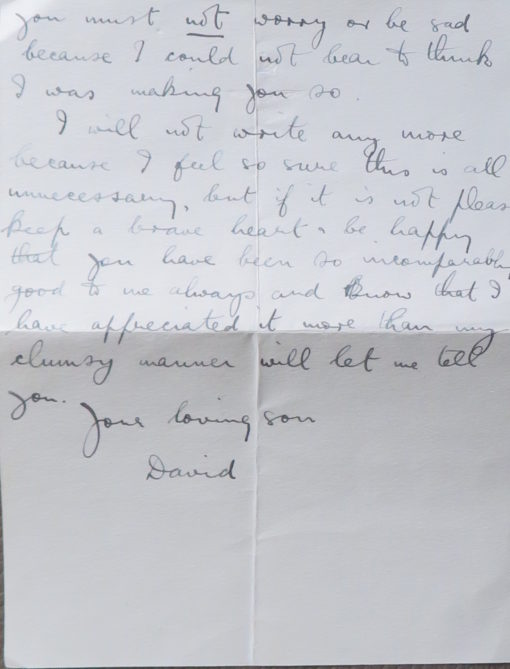 you must not worry or be sad
because I could not bear to think
I was making you so.
I will not write any more
because I feel so sure this is all
unnecessary, but if it is not pleas
keep a brave heart & be happy
that you have been so incomparably
good to me always and know that I
have appreciated it more than my
clumsy manner will let me tell
you.
Your loving son
David